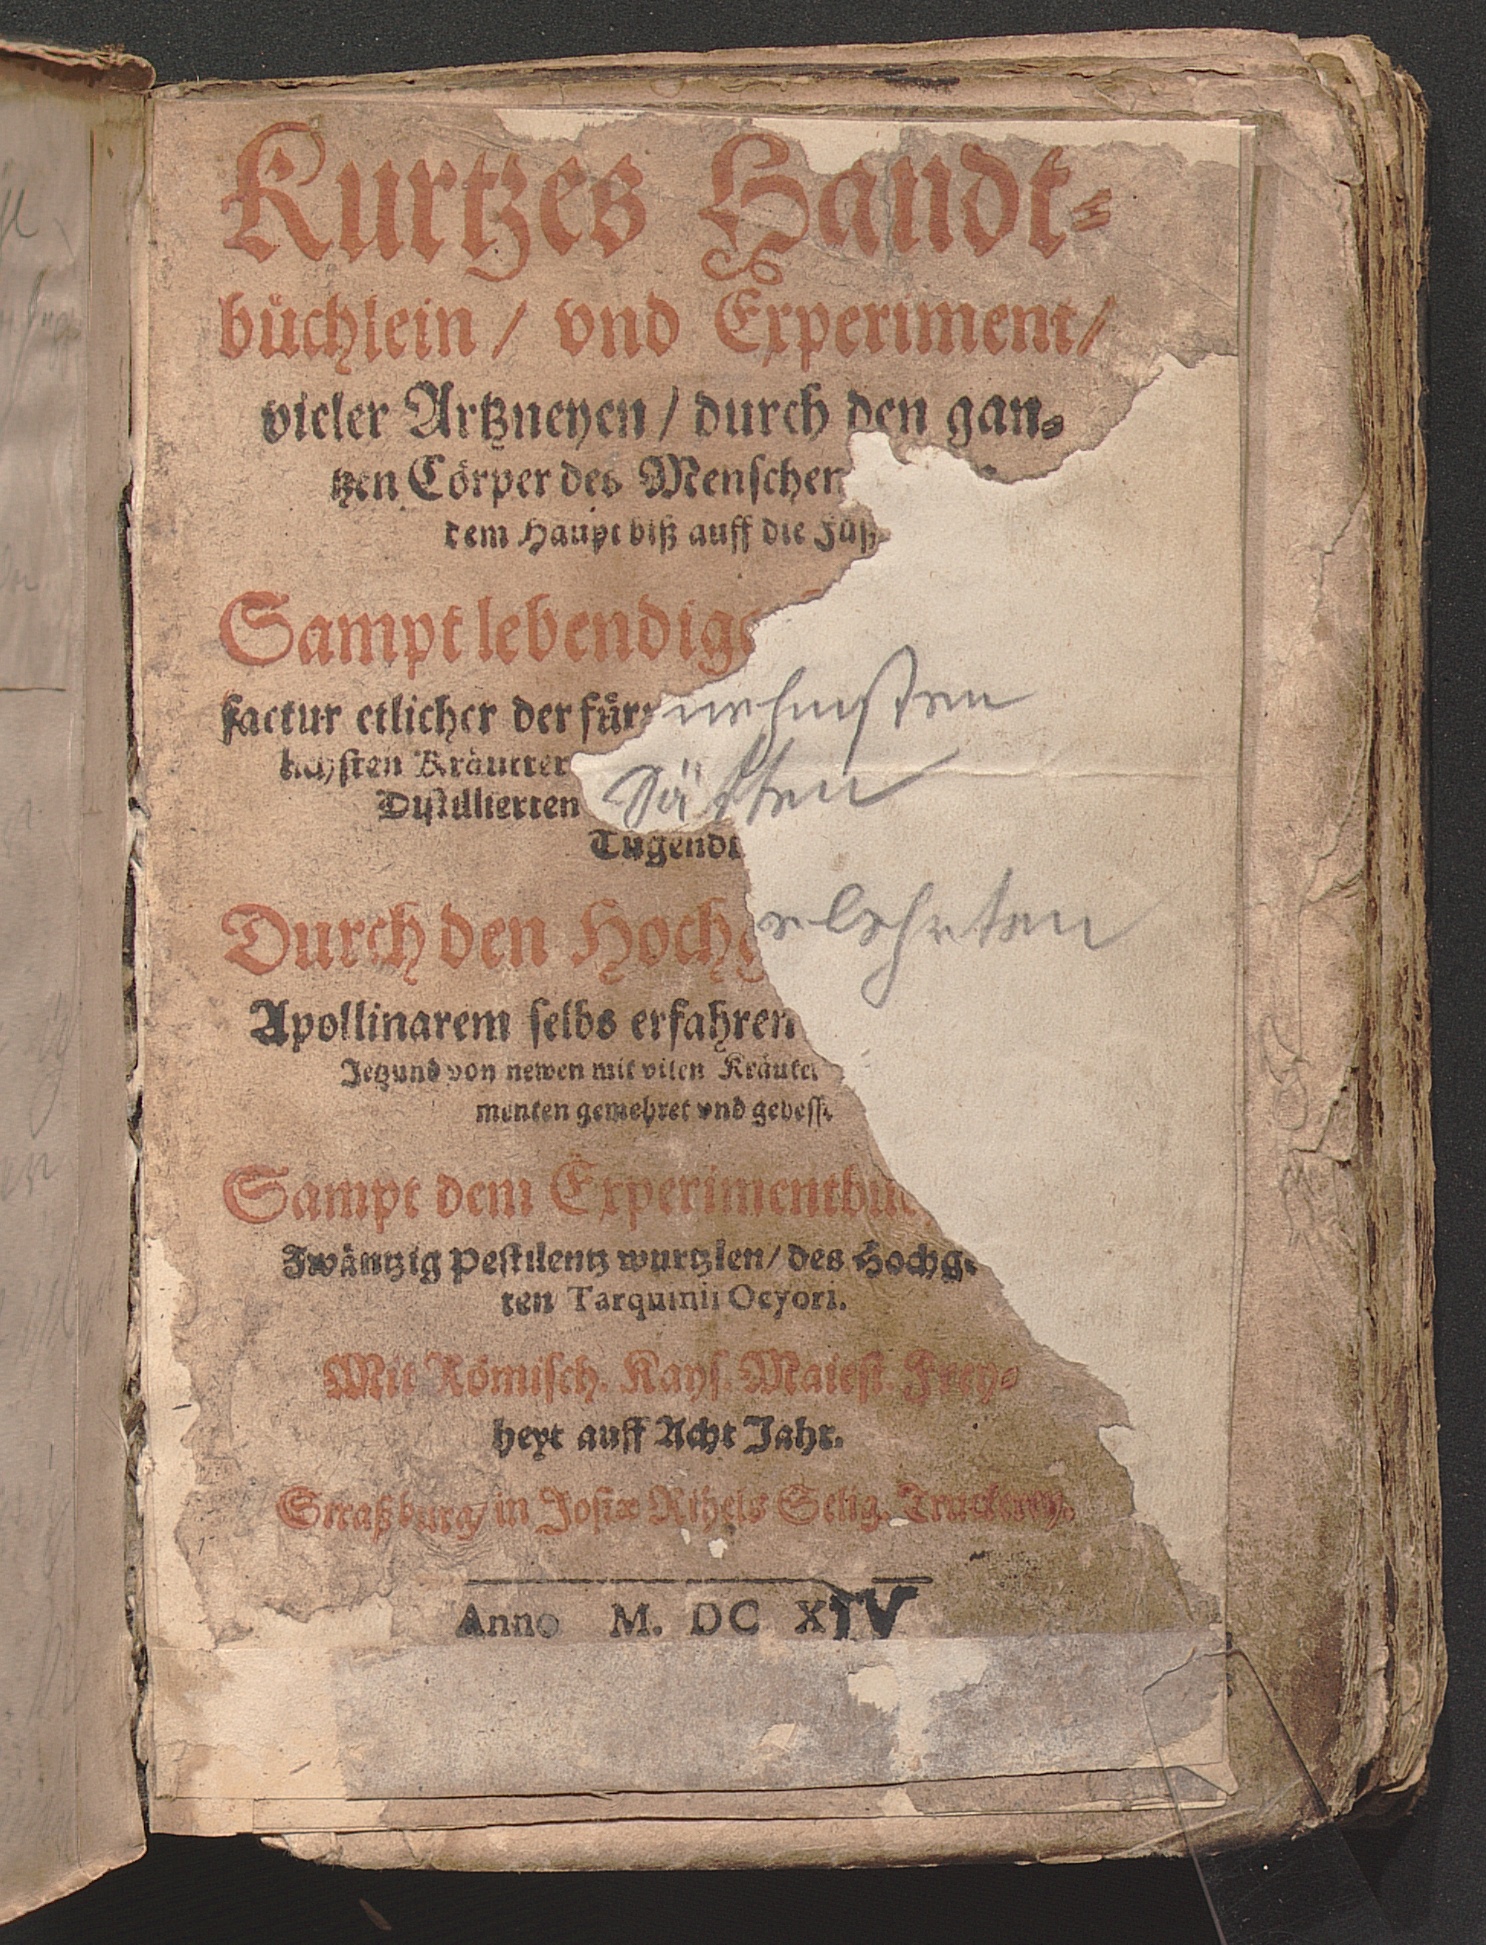 Kurtzes Handt-
büchlein / vnd Experiment /
vieler Artzneyen / durch den gan-
tzen Cörper des Menschen
dem Haupt biß auff die Füß
Sampt lebendige
factur etlicher der für nehmsten
Kräutter
Distillierten Säften
Tugendt
Durch den Hochg elehrten
Apollinarem selbs erfahren
Jetzund von newen mit vilen Kräuter
menten gemehret vnd gebess
Sampt dem Experimentbüch
Zwäntzig Pestilentz wurtzlen / des Hochge
ten Tarquinii Ocyori.
Mit Römisch. Kays. Maiest. Frey-
heyt auff Acht Jahr.
Straßburg / in Josiæ Rihels Selig. Truckerey.
Anno M. DC XIV